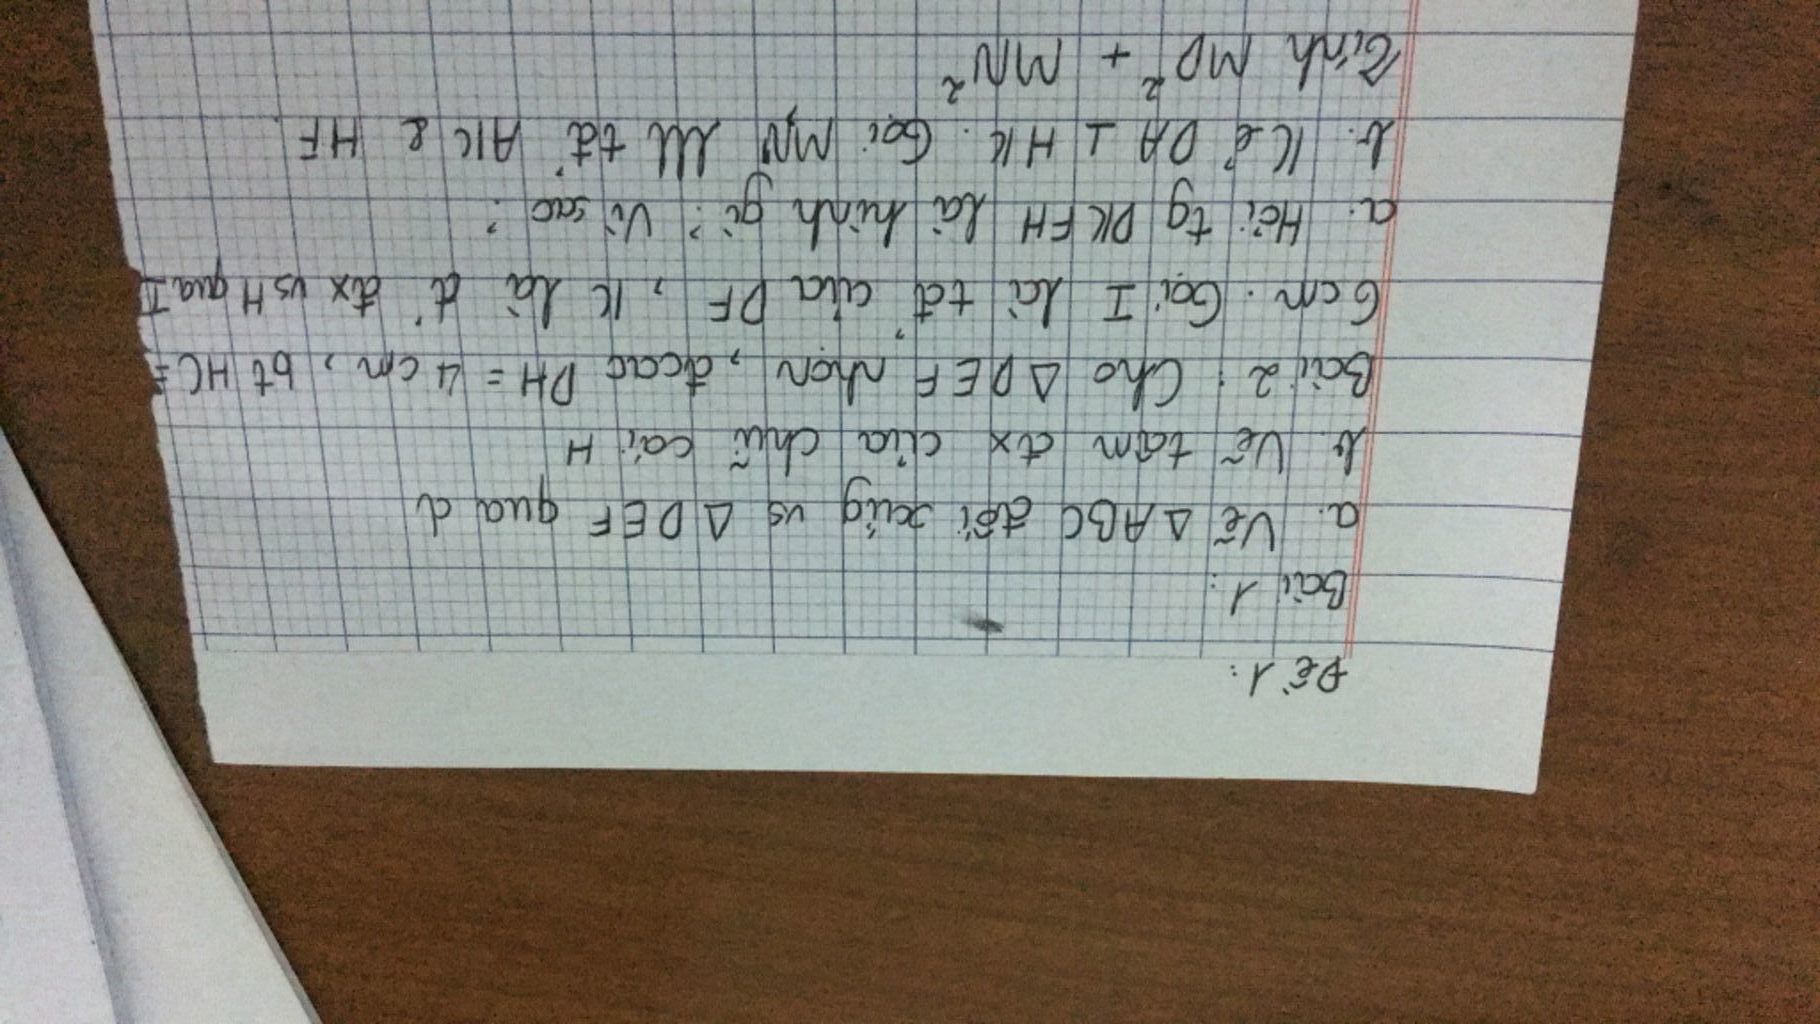 Đề 1:
Bài 1:
a. Vẽ Δ ABC đối xứng vs Δ DEF qua d
b. Vẽ tâm đx của chữ cái H
Bài 2: Cho Δ DEF nhọn, đcao DH = 4 cm, bt HC =
6 cm. Gọi I là tđ' của DF, K là đ' đx vs H qua I
a. Hỏi tg DKFH là hình gì? Vì sao?
b. Kẻ DA ⊥ HK. Gọi M,N lll tđ' AK & HF.
Tính MD² + MN²